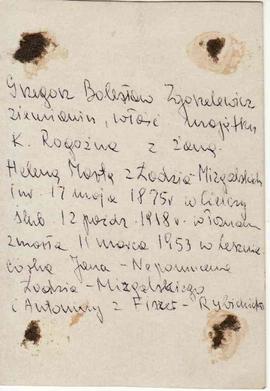 Grzegorz Bolesław Zgorzelewicz
ziemianin, właśc majątku
K. Rogoźna z żoną
Heleną Martą z Łodzia-Mizgalskich
ur. 17 maja 1875 r w
ślub. 12 paźdz. 1918 r. w Poznaniu
zmarła 11 marca 1953 w Lesznie
córka Jana-Nepomucena
Łodzia-Mizgalskiego
i Antoniny z